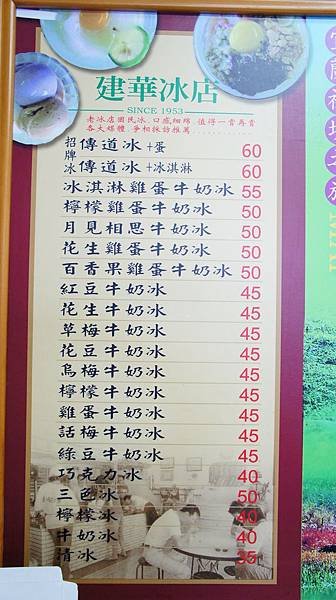 建華冰店
SINCE 1953
老冰店國民冰.口感細綿.值得一嘗再嘗
各大媒體.爭相採訪推薦
招牌冰
傳道冰+蛋 60
傳道冰+冰淇淋 60
冰淇淋雞蛋牛奶冰 55
檸檬雞蛋牛奶冰 50
月見相思牛奶冰 50
花生雞蛋牛奶冰 50
百香果雞蛋牛奶冰 50
紅豆牛奶冰 45
花生牛奶冰 45
草梅牛奶冰 45
花豆牛奶冰 45
烏梅牛奶冰 45
檸檬牛奶冰 45
雞蛋牛奶冰 45
話梅牛奶冰 45
綠豆牛奶冰 45
巧克力冰 40
三色冰 50
檸檬冰 40
牛奶冰 40
清冰 35